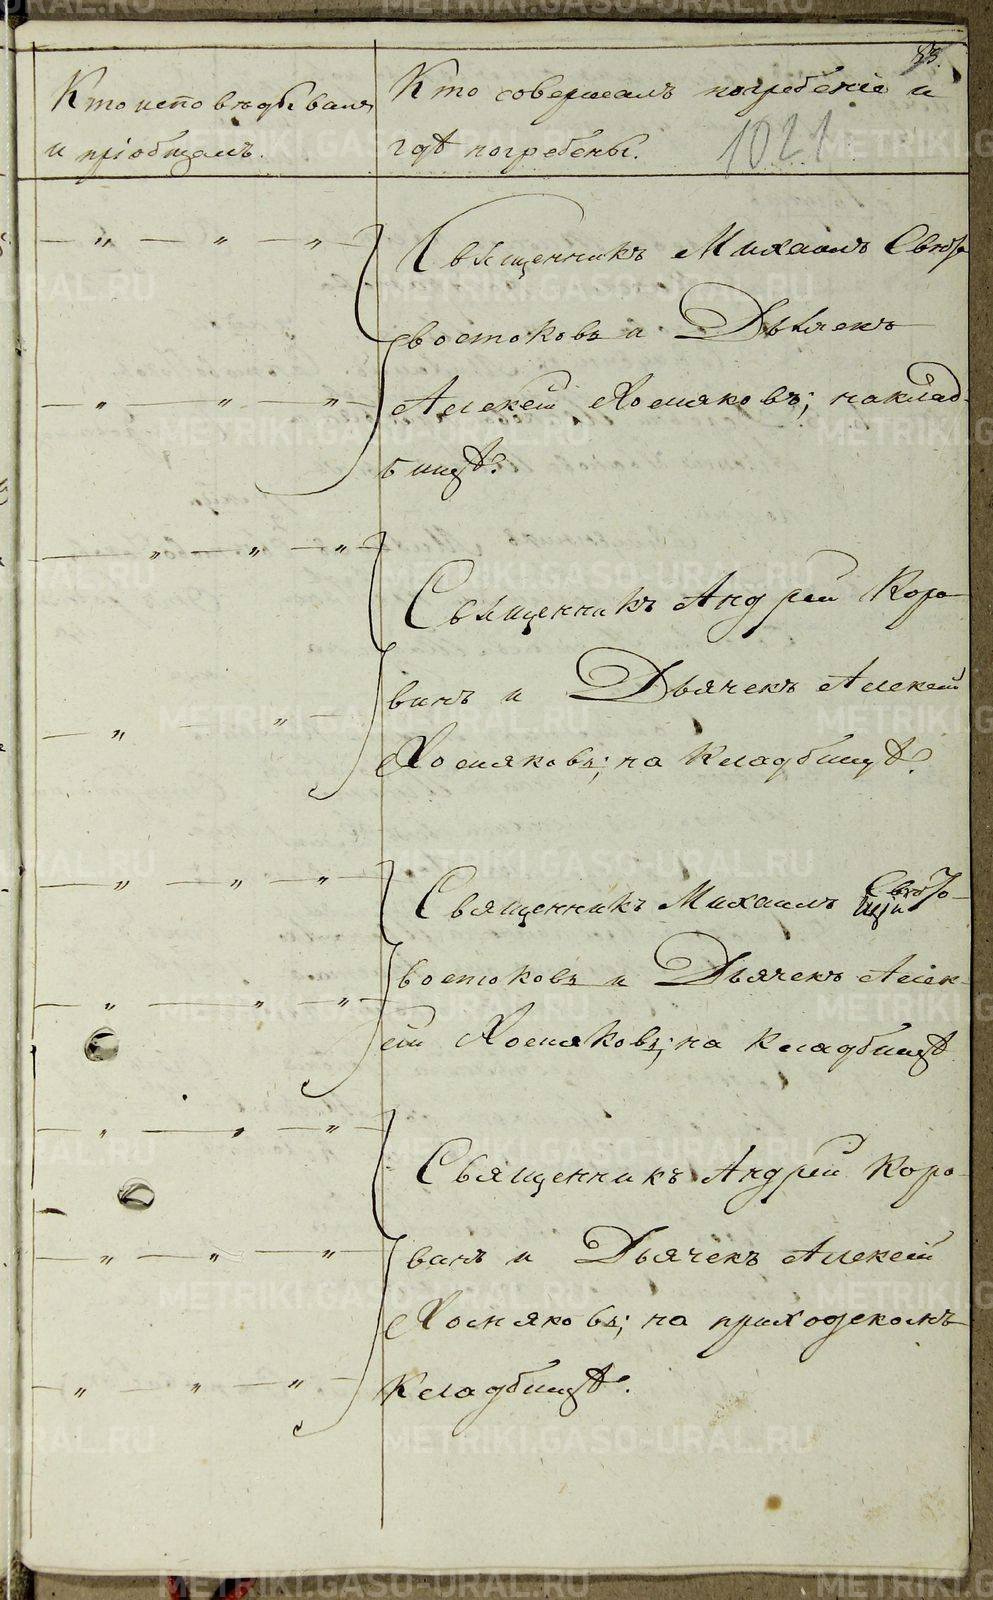 83.
Кто исповѣдывалъ
и пріобщалъ.
Кто совершалъ погребеніе и
гдѣ погребены.
1021
— „ — „ — „ —
Священникъ Михаилъ
востоковъ и Дьячекъ
— „ — „ — „ —
Алексѣй Хомяковъ; на клад-
бищѣ.
— „ — „ — „ —
Священникъ Андрей Коро-
винъ и Дьячекъ Алексѣй
— „ — „ —
Хомяковъ; на кладбищѣ.
— „ — „ — „ —
Священникъ Михаилъ
востоковъ и Дьячекъ Алек-
— „ — „ — „ —
сѣй Хомяковъ; на кладбищѣ
— „ — „ — „ —
Священникъ Андрей Коро-
— „ — „ — „ —
винъ и Дьячекъ Алексѣй
Хомяковъ; на приходскомъ
— „ — „ — „ —
кладбищѣ.
METRIKI.GASO-URAL.RU